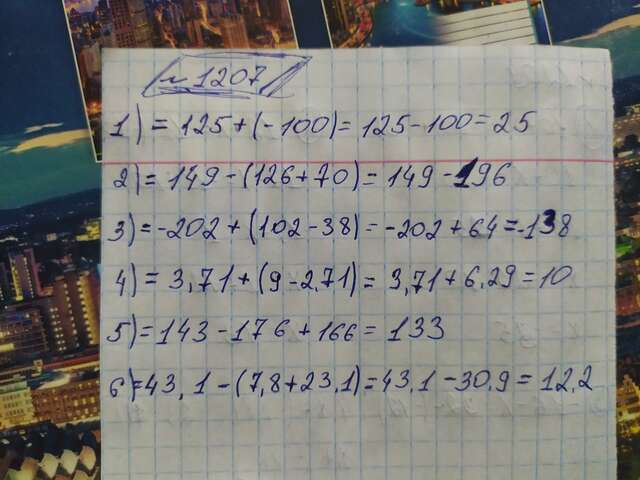 № 1207
1) = 125 + (-100) = 125 - 100 = 25
2) = 149 - (126 + 70) = 149 - 196
3) = -202 + (102 - 38) = -202 + 64 = -138
4) = 3,71 + (9 - 2,71) = 3,71 + 6,29 = 10
5) = 143 - 176 + 166 = 133
6) = 43,1 - (7,8 + 23,1) = 43,1 - 30,9 = 12,2